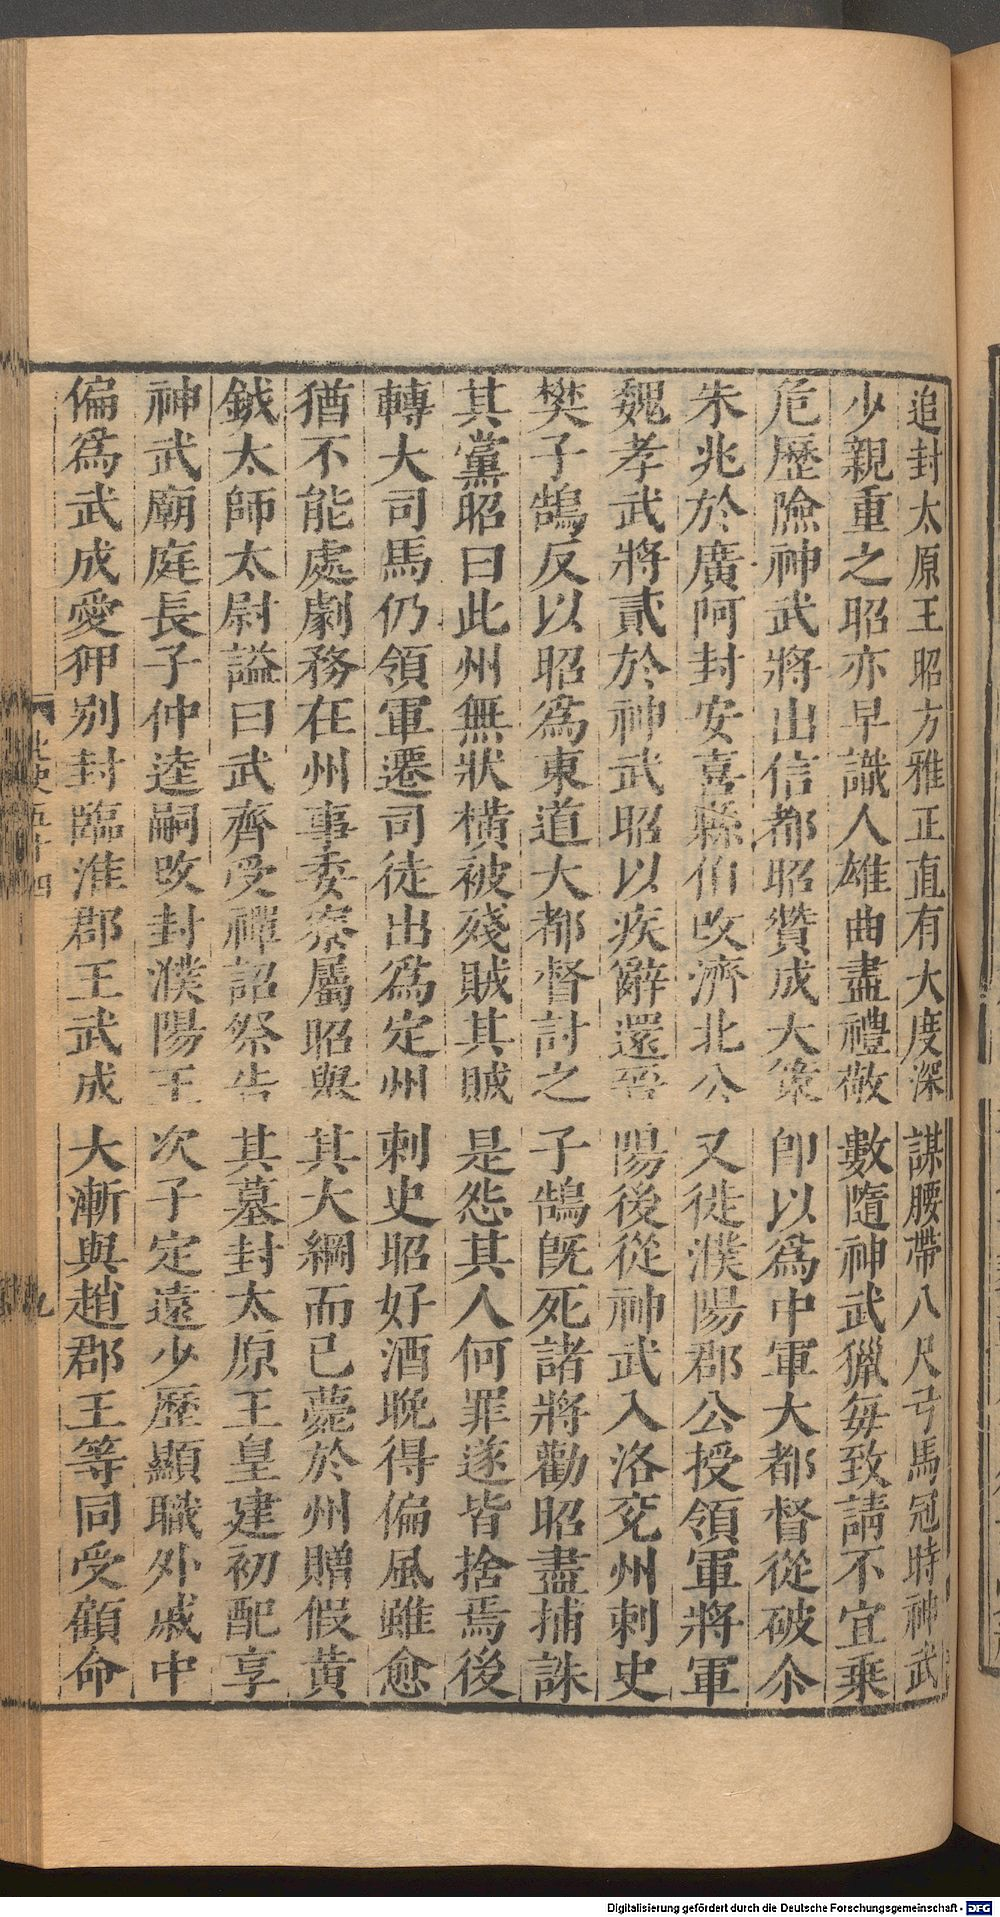 追封太原王昭方雅正直有大度深謀腰帶八尺弓馬冠時神武
少親重之昭亦早識人雄曲盡禮敬數隨神武獵每致請不宜乘
危歷險神武將出信都昭贊成大策卽以爲中軍大都督從破尒
朱兆於廣阿封安喜縣伯改濟北公又徙濮陽郡公授領軍將軍
魏孝武將貳於神武昭以疾辭還晉陽後從神武入洛兗州刺史
樊子鵠反以昭爲東道大都督討之子鵠旣死諸將勸昭盡捕誅
其黨昭曰此州無狀橫被殘賊其賊是怨其人何罪遂皆捨焉後
轉大司馬仍領軍遷司徒出爲定州刺史昭好酒晚得偏風雖愈
猶不能處劇務在州事委寮屬昭與其大綱而已薨於州贈假黄
鉞太師太尉謚曰武齊受禪詔祭告其墓封太原王皇建初配享
神武廟庭長子仲逵嗣改封濮陽王次子定遠少歷顯職外戚中
偏爲武成愛狎別封臨淮郡王武成大漸與趙郡王等同受顧命
北史五十四
九
Digitalisierung gefördert durch die Deutsche Forschungsgemeinschaft - DFG